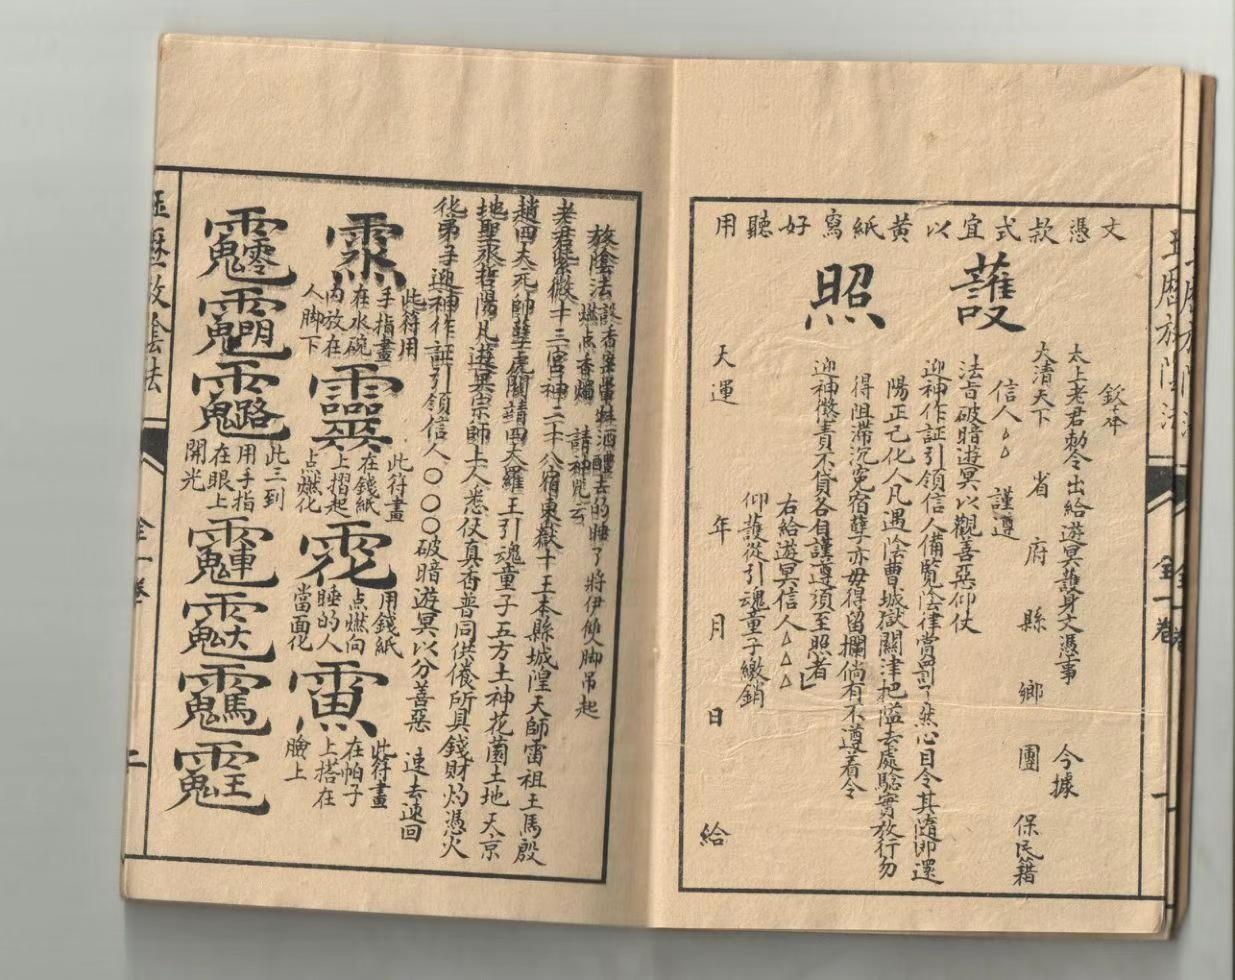 文憑款式宜以黃紙寫好聽用
護照
欽奉
太上老君勅令出給遊冥護身文憑事　今據
大清天下　省　府　縣　鄉　團　保民籍
信人△△　謹遵
法旨破暗遊冥以觀善惡仰仗
迎神作証引領信人備覽陰律賞罰了然心目令其隨即還
陽正己化人凡遇陰曹城獄關津把隘去處驗實放行勿
得阻滯沉冤宿孽亦毋得留攔倘有不遵着令
迎神懲責不貸各自謹遵須至照者
右給遊冥信人△△△
仰護從引魂童子繳銷
天運　年　月　日　給
放陰法設香案雷牲酒醴去的睡了將伊仰人脚吊起
燃点香燭　請神咒云
老君紫微十三宮神二十八宿東嶽十王本縣城隍天師雷祖王馬殷
趙四大元帥孽虎關請四大羅王引魂童子五方土神花園土地天京
地聖丞哲陽凡遊冥宗師上人悉仗真香普同供養所具錢財灼憑火
化弟子迎神作証引領信人○○○破暗遊冥以分善惡　速去速回
此符用
手指畫
在水碗
內放在
人脚下
此符畫
在錢紙
上摺起
点燃化
用錢紙
点燃向
睡的人
當面化
此符畫
在帕子
上搭在
臉上
此三到
用手指
在眼上
開光